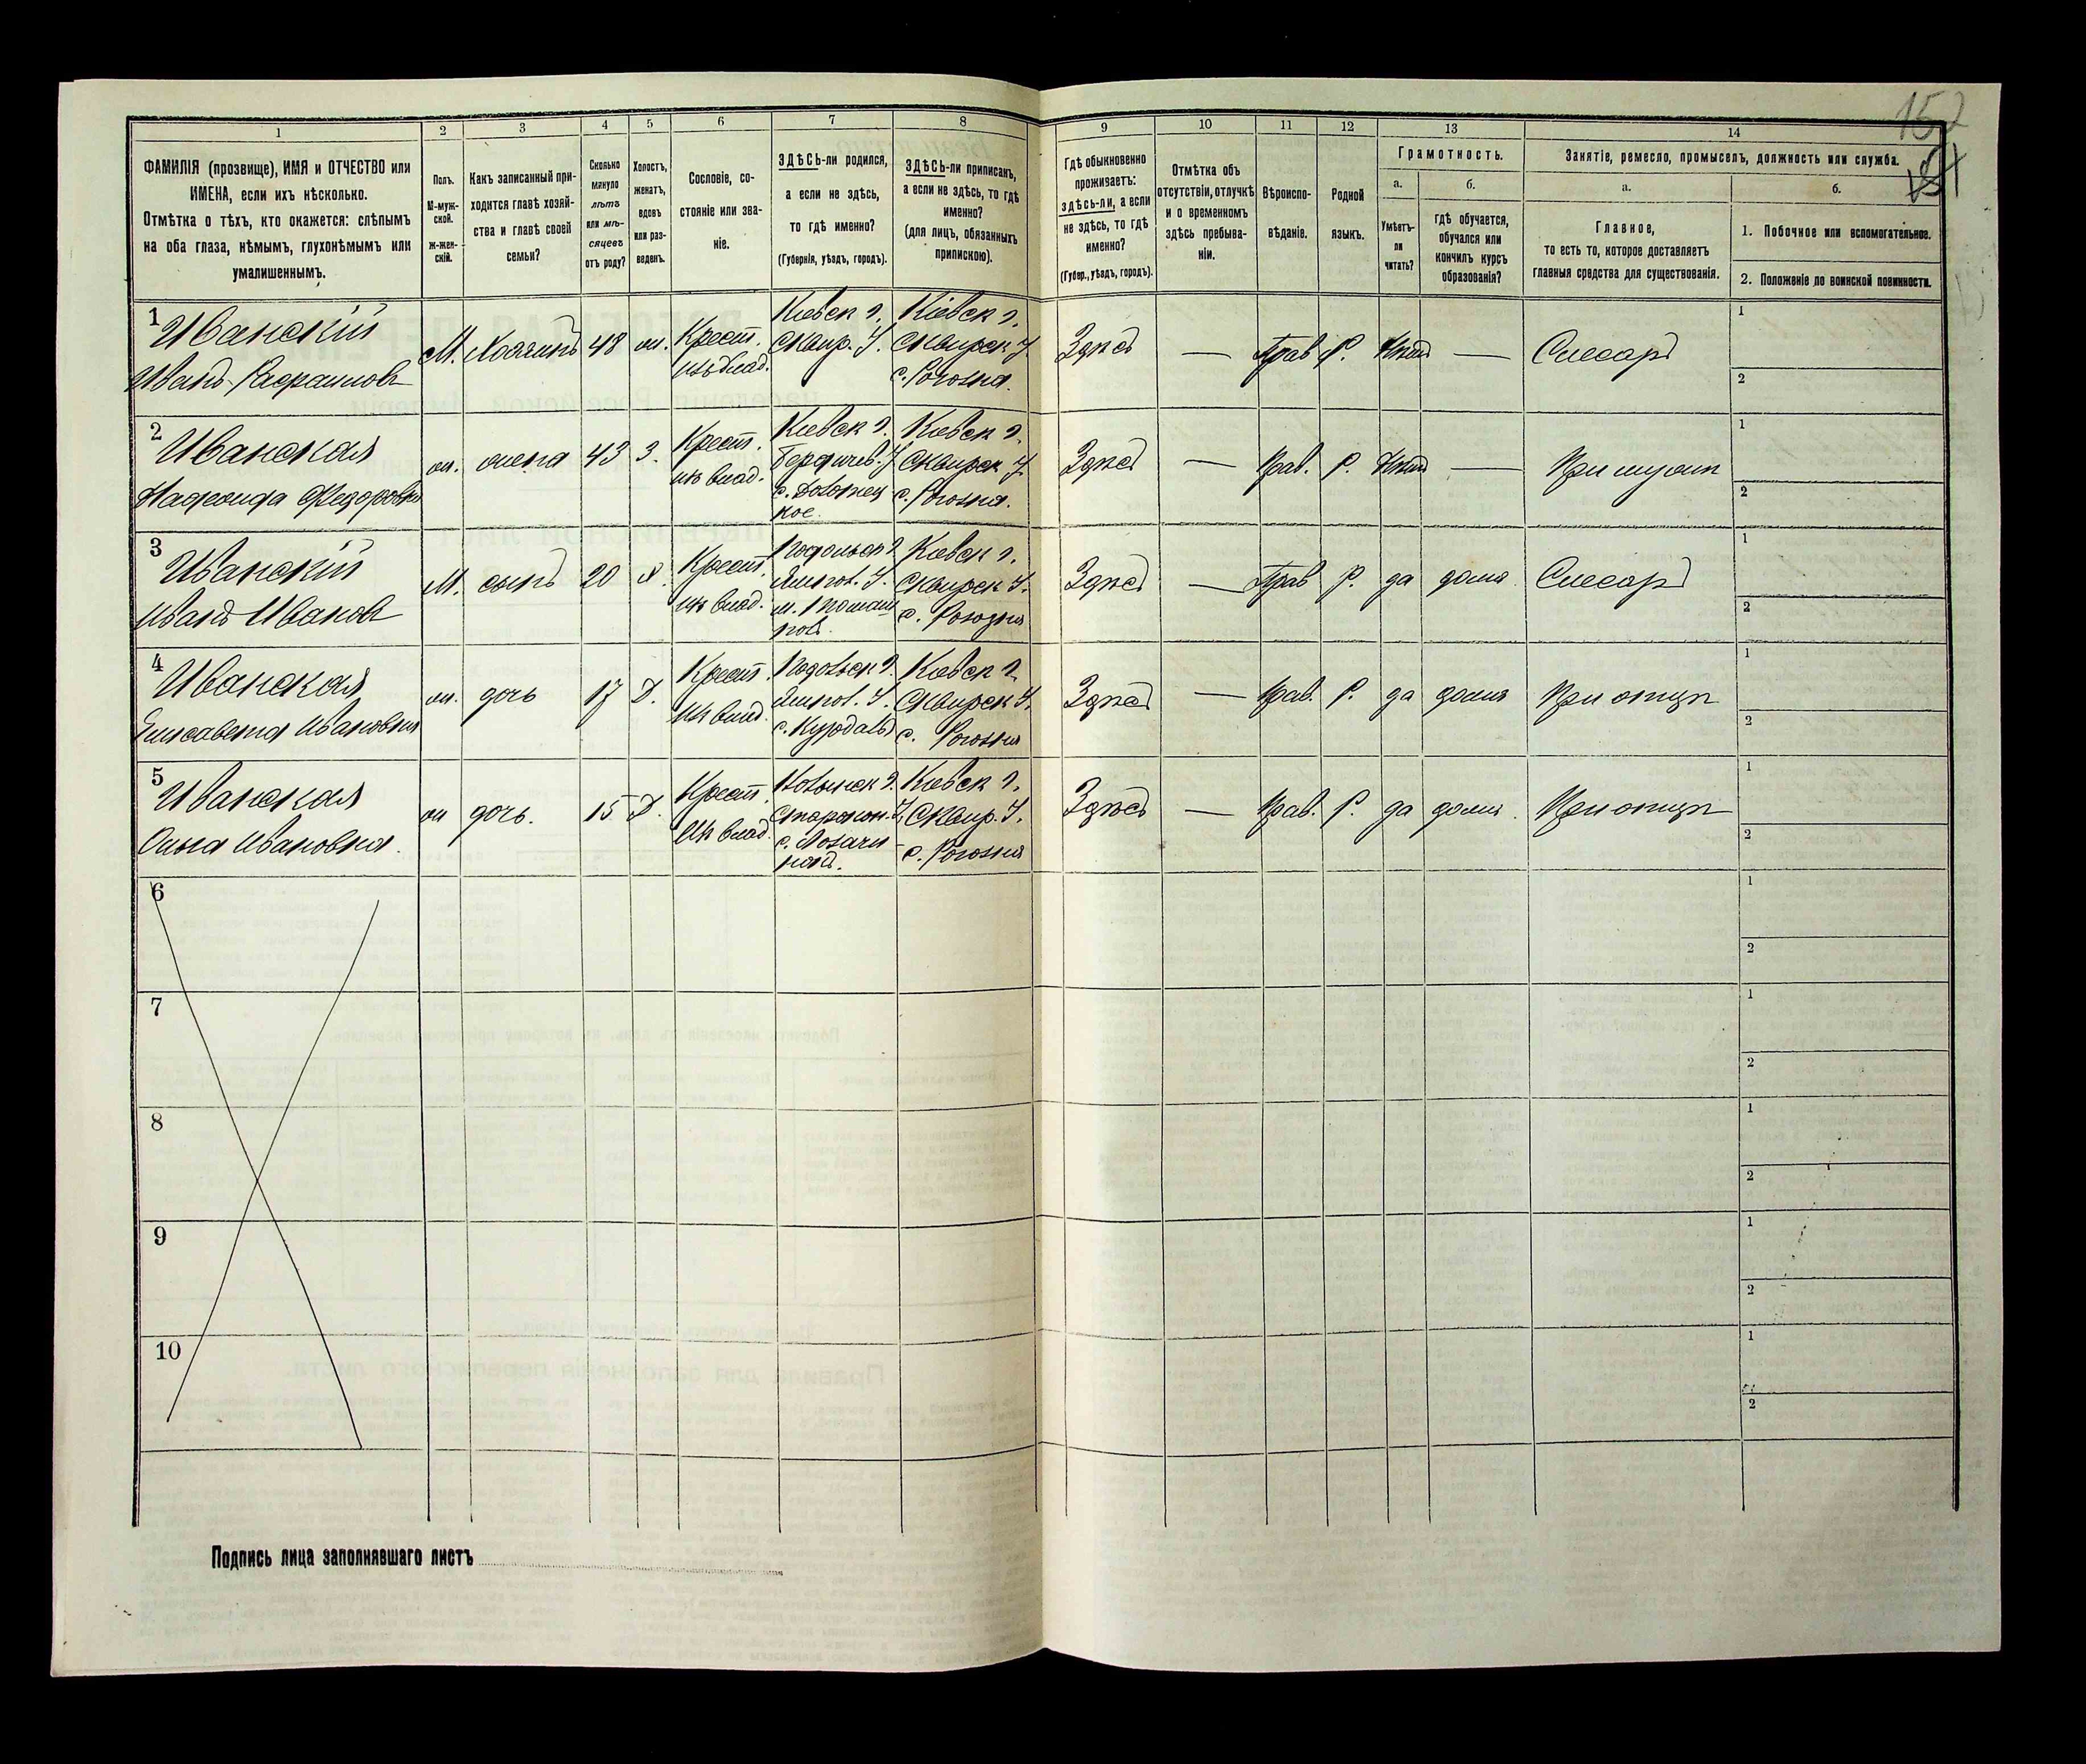 152
1
2
3
4
5
6
7
8
9
10
11
12
13
14
ФАМИЛІЯ (прозвище), ИМЯ и ОТЧЕСТВО или
ИМЕНА, если ихъ нѣсколько.
Отмѣтка о тѣхъ, кто окажется: слѣпымъ
на оба глаза, нѣмымъ, глухонѣмымъ или
умалишеннымъ.
Полъ.
М-муж-
ской.
Ж-жен-
скій.
Какъ записанный при-
ходится главѣ хозяй-
ства и главѣ своей
семьи?
Сколько
минуло
лѣтъ
или мѣ-
сяцевъ
отъ роду?
Холостъ,
женатъ,
вдовъ
или раз-
веденъ.
Сословіе, со-
стояніе или зва-
ніе.
ЗДѢСЬ-ли родился,
а если не здѣсь,
то гдѣ именно?
(Губернія, уѣздъ, городъ).
ЗДѢСЬ-ли приписанъ,
а если не здѣсь, то гдѣ
именно?
(для лицъ, обязанныхъ
припискою).
Гдѣ обыкновенно
проживаетъ:
здѣсь-ли, а если
не здѣсь, то гдѣ
именно?
(Губер., уѣздъ, городъ).
Отмѣтка объ
отсутствіи, отлучкѣ
и о временномъ
здѣсь пребыва-
ніи.
Вѣроиспо-
вѣданіе.
Родной
языкъ.
Грамотность.
а.
Умѣетъ-
ли
читать?
б.
гдѣ обучается,
обучался или
кончилъ курсъ
образованія?
Занятіе, ремесло, промыселъ, должность или служба.
а.
Главное,
то есть то, которое доставляетъ
главныя средства для существованія.
б.
1. Побочное или вспомогательное.
2. Положеніе по воинской повинности.
1
Иванскій
Иванъ
М.
Хозяинъ
48
ж.
Крест.
изъ влад.
Кіевск г.
Сквир. У.
Кіевск г.
Сквирск У.
с. Рогозна.
Здѣсь
—
Прав
Р.
Нѣтъ
—
Слесарь
1
2
2
Иванская
Надежда Федоровна
ж.
жена
43
З.
Крест.
изъ влад.
Кіевск г.
Бердичев. У.
Кіевск г.
Сквирск У.
с. Рогозна.
Здѣсь
—
Прав.
Р.
Нѣтъ
—
При мужѣ
1
2
3
Иванскій
Иванъ Иванов
М.
сынъ
20
Х.
Крест.
изъ влад.
Подольск г.
Ямпол. У.
м. Томаш
поль.
Кіевск г.
Сквирск У.
с. Рогозна
Здѣсь
—
Прав
Р.
да
дома
Слесарь
1
2
4
Иванская
Елисавета Ивановна
ж.
дочь
17
Д.
Крест.
изъ влад.
Подольск г.
Ямпол. У.
Кіевск г.
Сквирск У.
с. Рогозна
Здѣсь
—
Прав.
Р.
да
дома
При отцѣ
1
2
5
Иванская
Ольга Ивановна.
ж
дочь.
15
Д.
Крест.
изъ влад.
Волынск г.
Старокон. У.
Кіевск г.
Сквир. У.
с. Рогозна
Здѣсь
—
Прав.
Р.
да
дома.
При отцѣ
1
2
6
1
2
7
1
2
8
1
2
9
1
2
10
1
2
Подпись лица заполнявшаго листъ